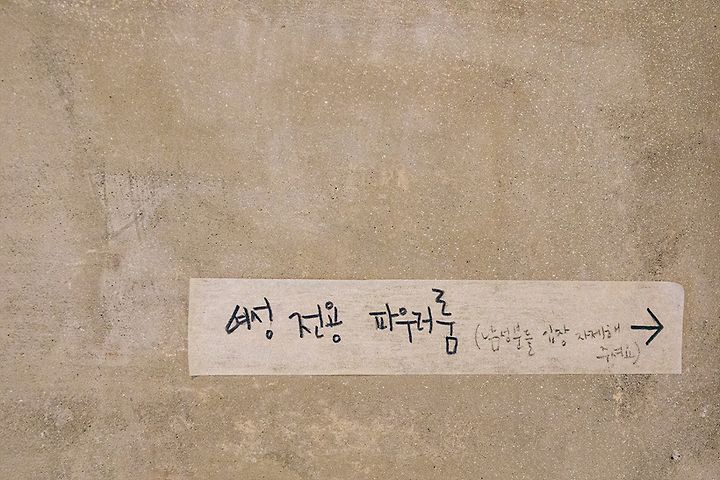 여성 전용 파우더룸 (남성분들 입장 자제해
주셔요)